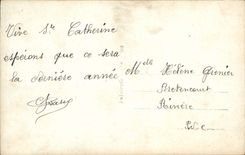 Vive Ste Catherine
espérons que ce sera
la dernière année
Melle Hélène Grenier
Bretencourt
Rivière
P.d.C